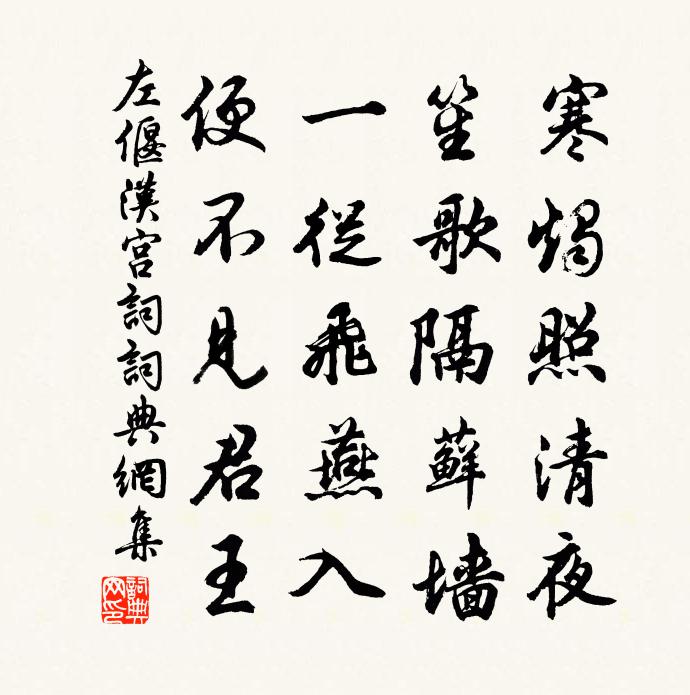 寒燭照清夜
笙歌隔蘚墻
一從飛燕入
便不見君王
左偃漢宮詞詞典網集
詞典網印